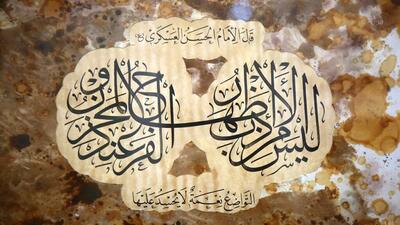 قال الإمام الحسن العسكري (ع)
ليس من الأدب إظهار الفرح عند المحزون
التواضع نعمة لا يحسد عليها